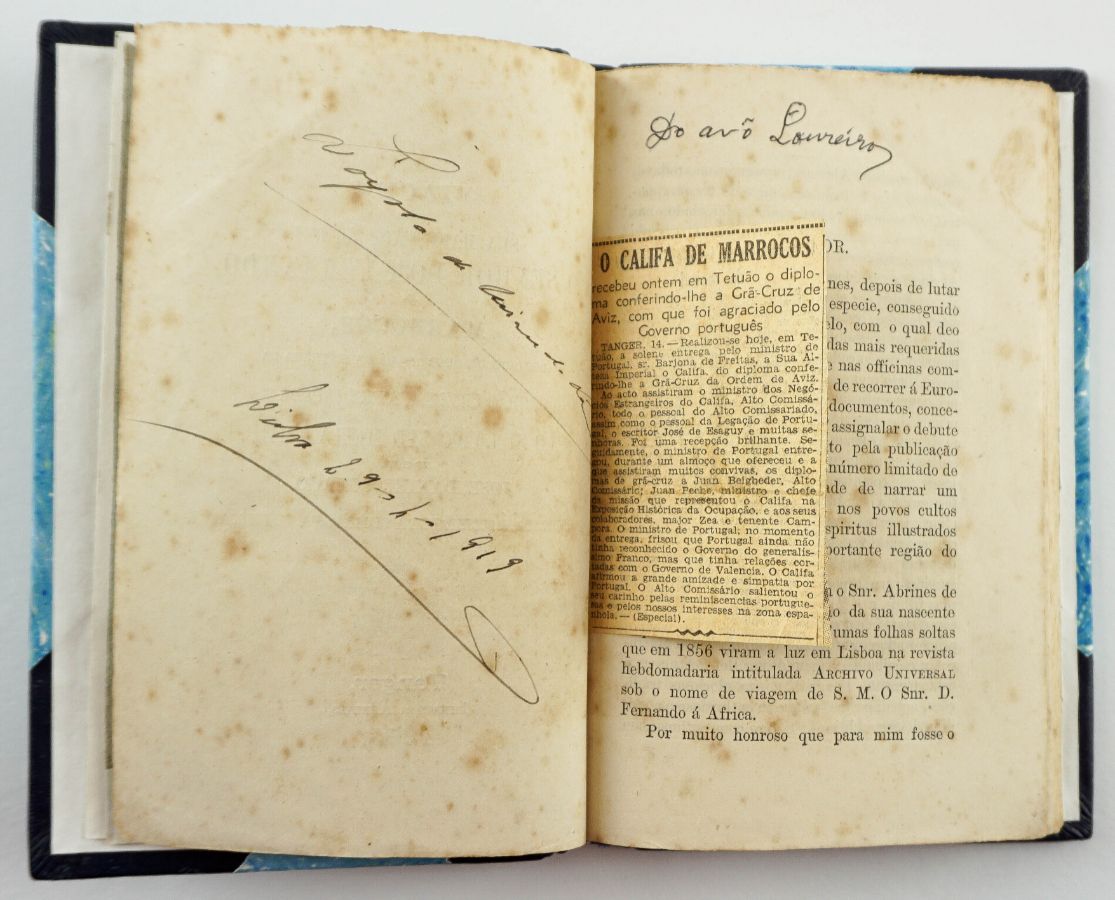 Lisboa 2-9-1919
Do avô Loureiro
O CALIFA DE MARROCOS
recebeu ontem em Tetuão o diplo-
ma conferindo-lhe a Grã-Cruz de
Aviz, com que foi agraciado pelo
Governo português
TANGER, 14. — Realizou-se hoje, em Te-
tuão, a solene entrega pelo ministro de
Portugal, sr. Barjona de Freitas, a Sua Al-
teza Imperial o Califa, do diploma confe-
rindo-lhe a Grã-Cruz da Ordem de Aviz.
Ao acto assistiram o ministro dos Negó-
cios Estrangeiros do Califa, Alto Comissá-
rio, todo o pessoal do Alto Comissariado,
assim como o pessoal da Legação de Portu-
gal, o escritor José de Esaguy e muitas se-
nhoras. Foi uma recepção brilhante. Se-
guidamente, o ministro de Portugal entre-
gou, durante um almoço que ofereceu e a
que assistiram muitos convivas, os diplo-
mas de grã-cruz a Juan Beigbeder, Alto
Comissário; Juan Peche, ministro e chefe
da missão que representou o Califa na
Exposição Histórica da Ocupação, e aos seus
colaboradores, major Zea e tenente Cam-
pora. O ministro de Portugal, no momento
da entrega, frisou que Portugal ainda não
tinha reconhecido o Governo do generalis-
simo Franco, mas que tinha relações cor-
tadas com o Governo de Valencia. O Califa
afirmou a grande amizade e simpatia por
Portugal. O Alto Comissário salientou o
seu carinho pelas reminiscencias portugue-
sas e pelos nossos interesses na zona espa-
nhola. — (Especial).
OR.
nes, depois de lutar
especie, conseguido
elo, com o qual deo
das mais requeridas
e nas officinas com-
de recorrer á Euro-
documentos, conce-
assignalar o debute
to pela publicação
número limitado de
ade de narrar um
nos povos cultos
spiritus illustrados
portante região do
o Snr. Abrines de
o da sua nascente
umas folhas soltas
que em 1856 viram a luz em Lisboa na revista
hebdomadaria intitulada ARCHIVO UNIVERSAL
sob o nome de viagem de S. M. O Snr. D.
Fernando á Africa.
Por muito honroso que para mim fosse o